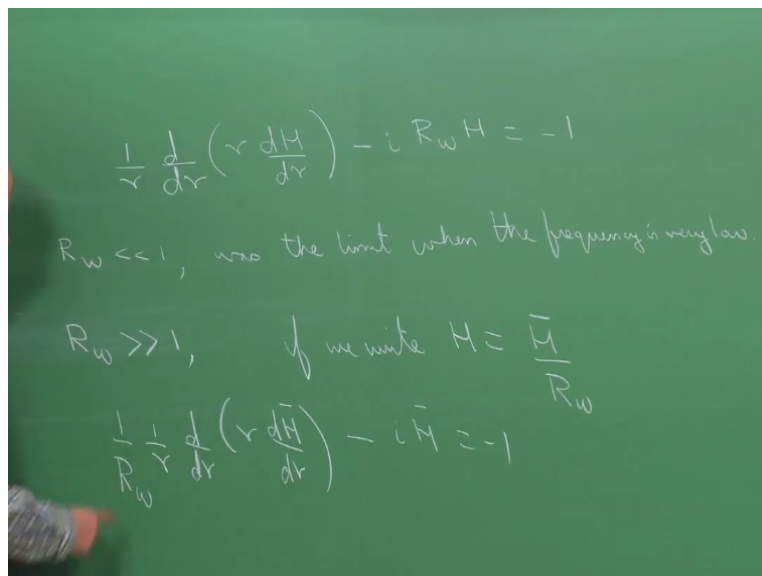 1/r d/dr (r dH/dr) - i R_ω H = -1
R_ω << 1, was the limit when the frequency is very low.
R_ω >> 1, if we write H = H̄/R_ω
1/R_ω 1/r d/dr (r dH̄/dr) - i H̄ = -1